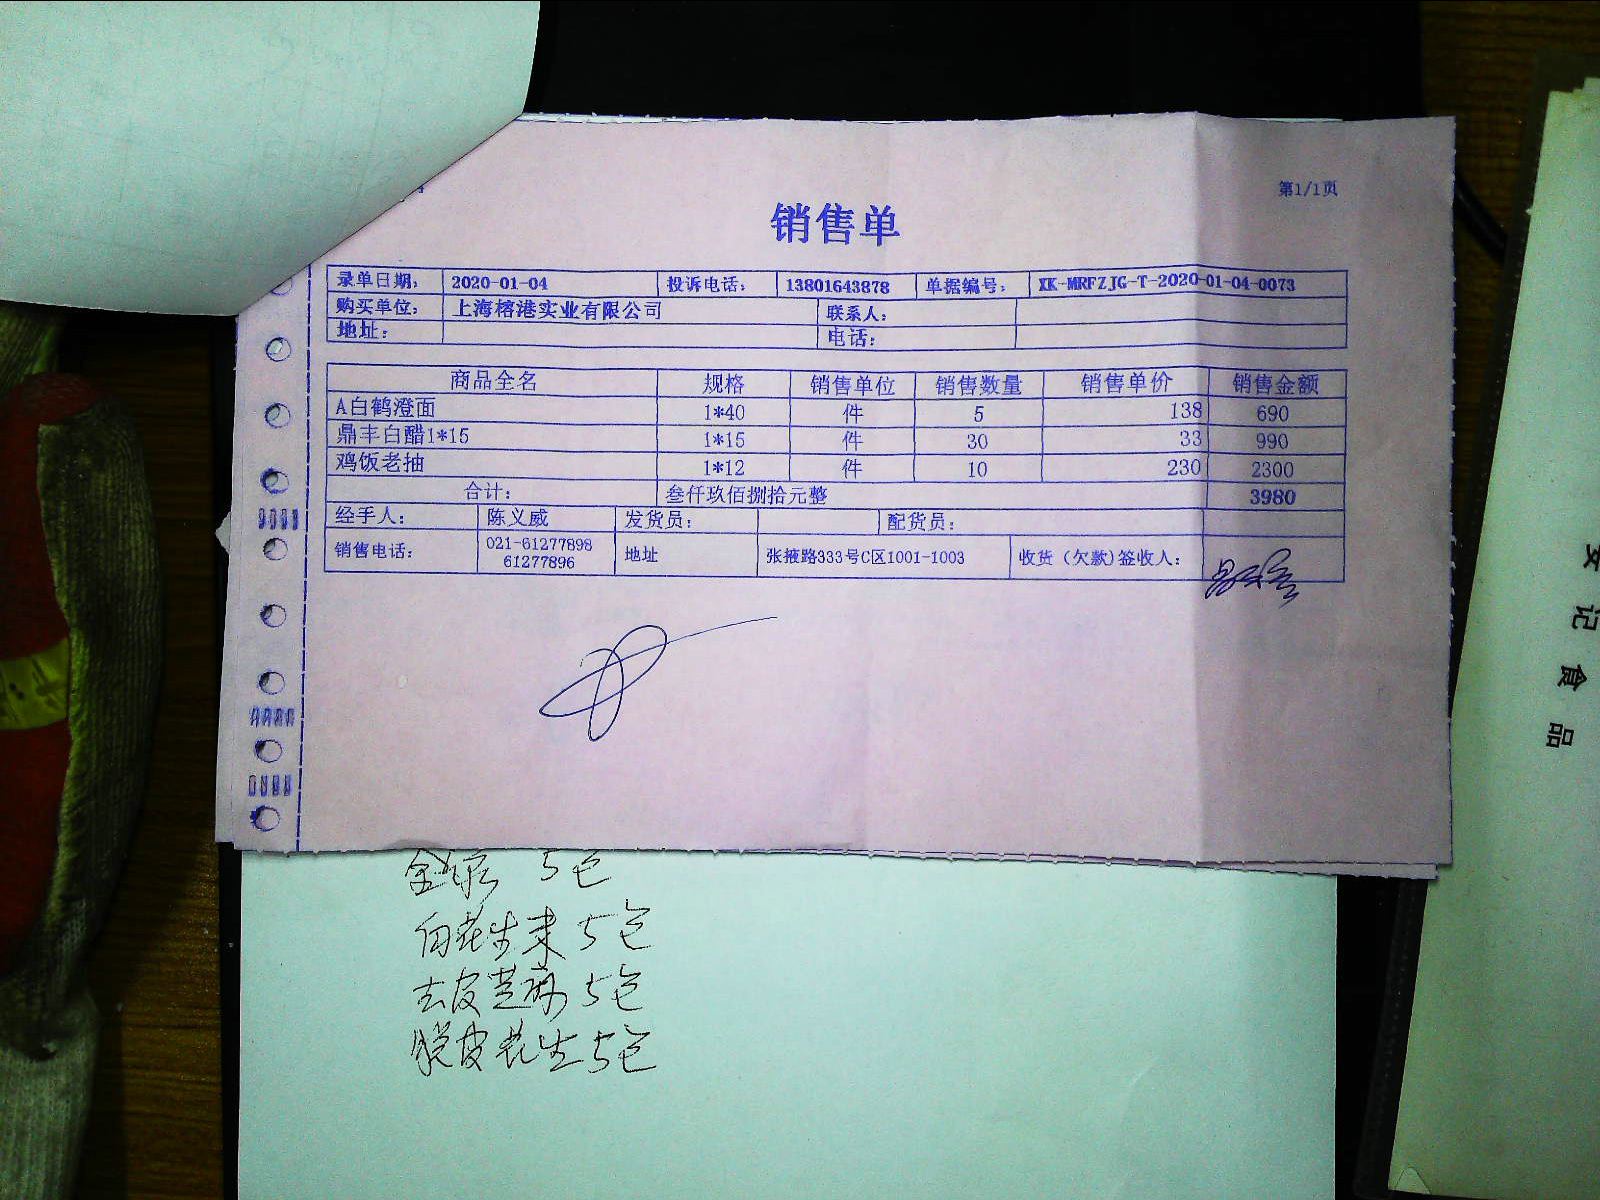 第1/1页
销售单
录单日期： 2020-01-04 投诉电话： 13801643878 单据编号： XK-MRFZJG-T-2020-01-04-0073
购买单位： 上海榕港实业有限公司 联系人：
地址： 电话：
商品全名 规格 销售单位 销售数量 销售单价 销售金额
A白鹤澄面 1*40 件 5 138 690
鼎丰白醋1*15 1*15 件 30 33 990
鸡饭老抽 1*12 件 10 230 2300
合计： 叁仟玖佰捌拾元整 3980
经手人： 陈义威 发货员： 配货员：
销售电话： 021-61277898 61277896 地址 张掖路333号C区1001-1003 收货（欠款)签收人：
5包
白花生米 5包
去皮芝麻 5包
脱皮花生 5包
记食品